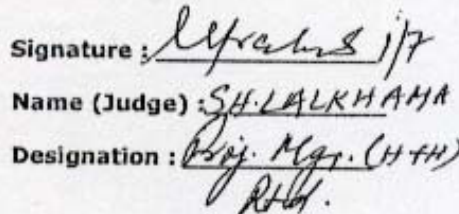 Signature : 1/7
Name (Judge) : SH. LALKHAMA
Designation : Proj. Mgr. (H+H)